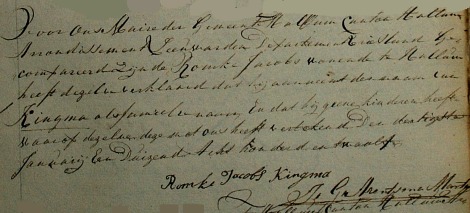 Voor Ons Maire der Gemeente Hallum Canton Hallum
Arrondissement Leeuwarden Departement Vriesland Ge
compareerd zijnde Romke Jacobs wonende te Hallum
heeft dezelve verklaard dat hij aanneemd den naam van
Kingma als familie naam, En dat hij geene kinderen heeft
waar op dezelve deze met ons heeft getekend. Den dertigste
Januarij Een Duizend Acht honderd en twaalf
Romke Jacobs Kingma